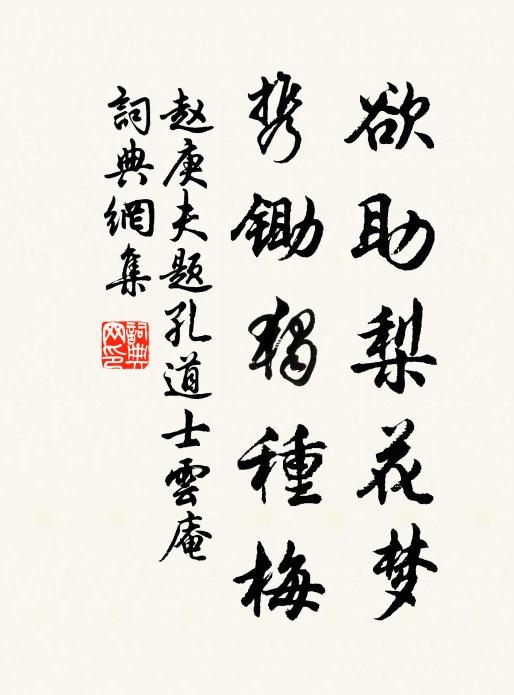 欲助梨花梦
携锄独種梅
赵庚夫题孔道士雲庵
詞典網集
詞典网印